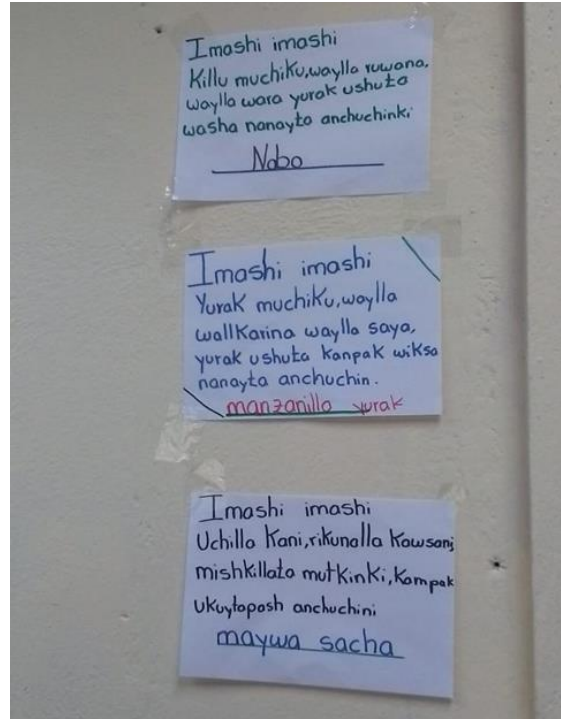 Imashi imashi
Killu muchiku, waylla ruwana,
waylla wara yurak ushuta
washa nanayta anchuchinki
Nabo
Imashi imashi
Yurak muchiku, waylla
wallkarina waylla saya,
yurak ushuta kanpak wiksa
nanayta anchuchin.
manzanilla yurak
Imashi imashi
Uchilla Kani, rikunalla Kawsani
mishkillata mutkinki, Kampak
ukuytapash anchuchini
maywa sacha